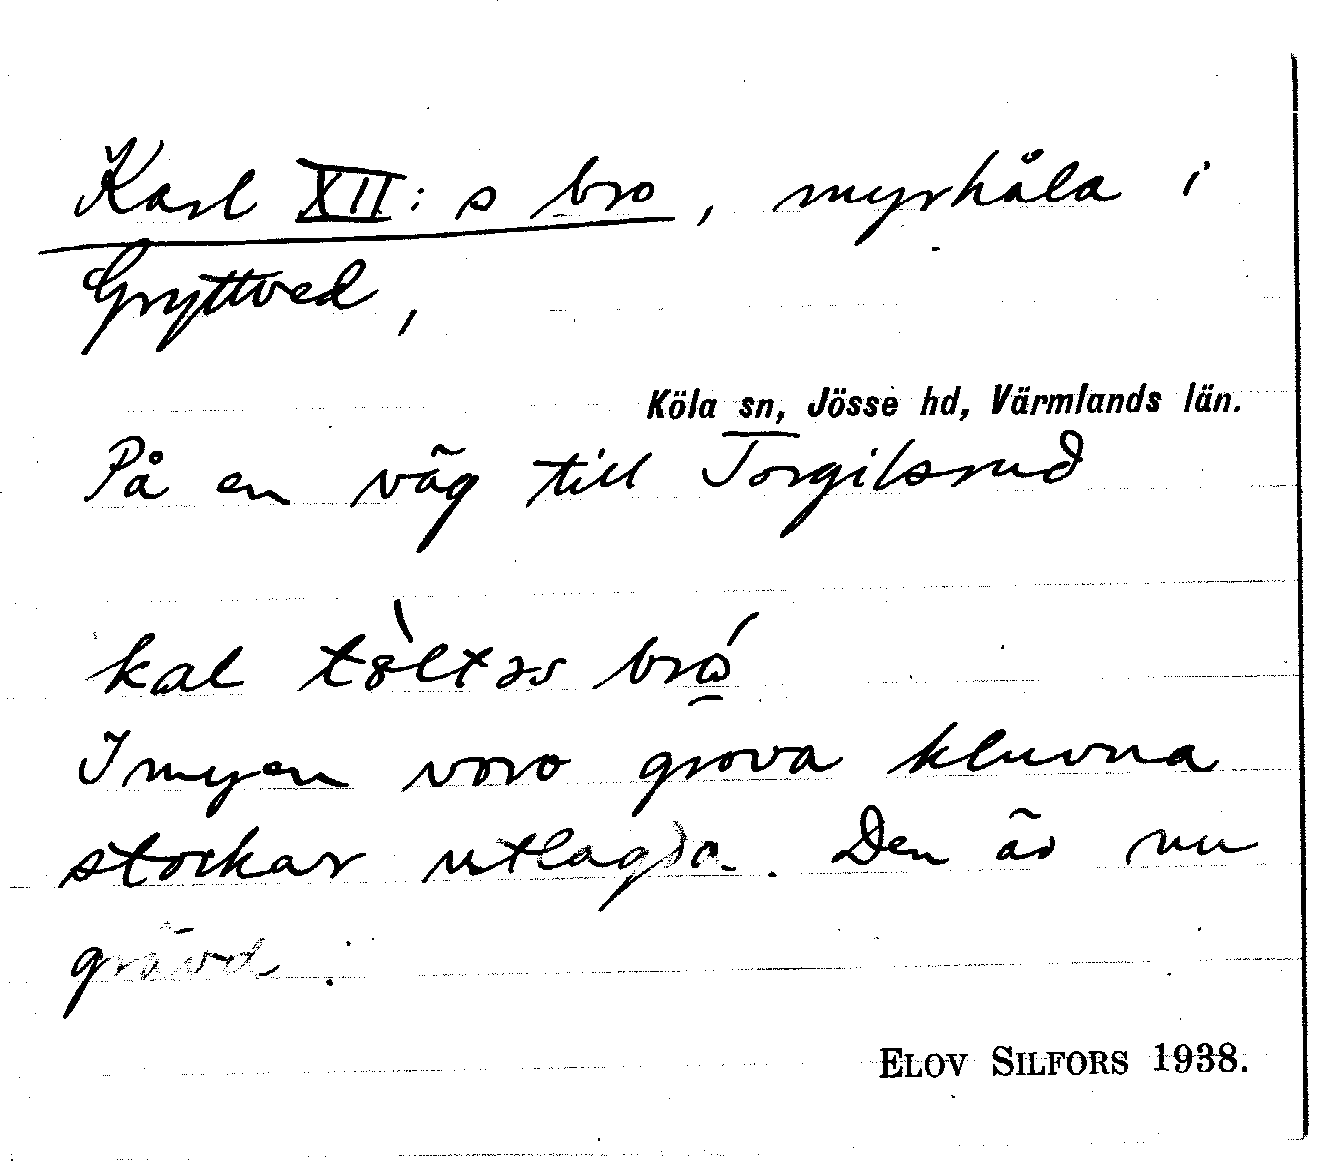 Karl XII:s bro, myrhåla i
Gryttved,
Köla sn, Jösse hd, Värmlands län.
På en väg till Torgilsrud
kal tòltəs bró
I myen voro grova kluvna
stockar utlagda. Den är nu
grävd.
ELOV SILFORS 1938.